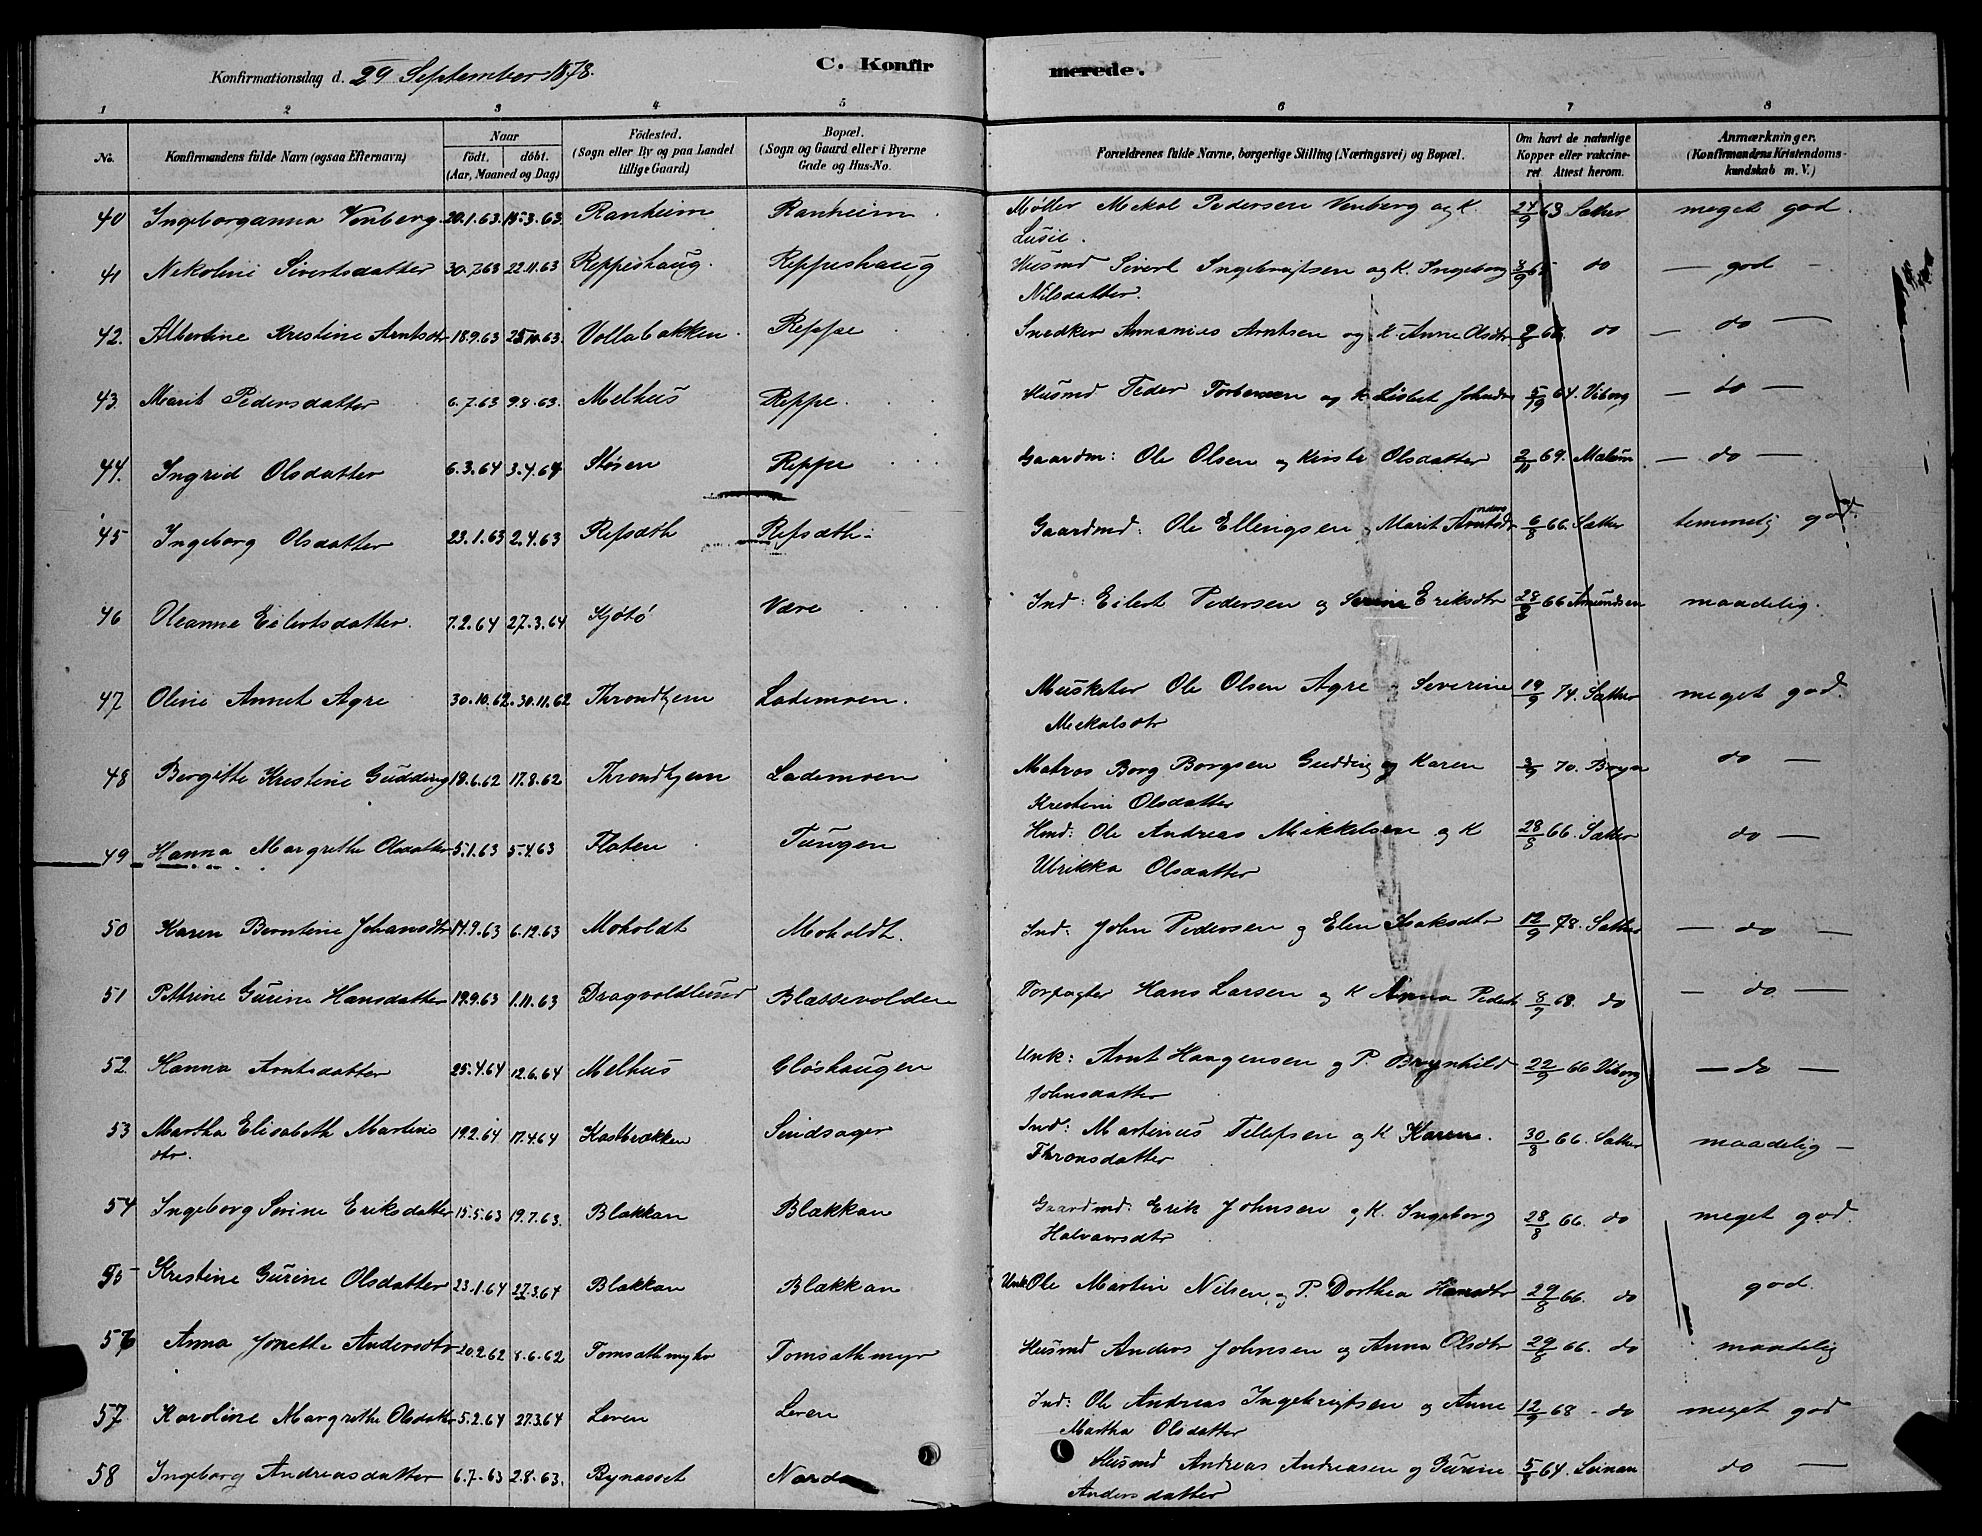 Konfirmationsdag d. 29 September 1878.
C. Konfirmerede.
1 2 3 4 5 6 7 8
No. Konfirmandens fulde Navn (ogsaa Efternavn) Naar födt. döbt. (Aar, Maaned og Dag) Födested. (Sogn eller By og paa Landet tillige Gaard) Bopæl. (Sogn og Gaard eller i Byerne Gade og Hus-No. Forældrenes fulde Navne, borgerlige Stilling (Næringsvei) og Bopæl. Om havt de naturlige Kopper eller vakcineret Attest herom. Anmærkninger. (Konfirmandens Kristendomskundskab m. V.)
40 Ingeborganna Venberg 20.1.63 15.3.63 Ranheim Ranheim Møller Mekal Pedersen Venberg og K. 24/9 63 Sæther meget god.
Lusie.
41 Nikoline Sivertsdatter 30.7.63 22.11.63 Reppeshaug. Reppeshaug Husmd Sivert Ingebrigtsen og K. Ingeborg do — god —
Nilsdatter.
42. Albertine Kristine Arntsdtr 18.9.63 25.10.63. Vollabakken. Reppe Snedker Annanias Arntsen og K. Anne Olsdtr do — do —
43. Marit Pedersdatter 6.7.63 9.8.63. Melhus Reppe. Husmd Peder Torbersen og K Lisbet Johnsdr 64. Viborg — do —
44. Ingrid Olsdatter 6.3.64 3.4.64 Støren Reppe Gaardm: Ole Olsen og Kirsti Olsdatter 2/11 69. — do —
45 Ingeborg Olsdatter 23.1.63 2.4.63 Refsæth Refsæth Gaardmd: Ole Ellingsen, Marit 6/8 66. Sæther temmelig god.
46 Oleanna Eilertsdatter. 7.2.64 27.3.64 Kjøtø Være Ind: Eilert Pedersen og Serina Eriksdtr 28/8 66 Amundsen maadelig.
47 Oline Annet Agre 30.10.62. 30.11.62 Throndhjem Lademoen. Musketer Ole Olsen Agre og Severine 19/9 74. Sæther meget god.
Mekalsdtr
48 Bergitte Kristine Gudding 18.6.62 17.8.62 Throndhjem Lademoen Matros Borg Borgsen Gudding og Karen 3/9 70. do —
Kristine Olsdatter
49 Hanna Margrethe Olsdatter 5.1.63 5.4.63 Flaten Tungen Hmd: Ole Andreas Mikkelsen og K 28/8 66. Sæther do —
Ulrikka Olsdatter
50 Karen Berntine Johansdtr 14.9.63 6.12.63 Moholdt Moholdt. Ind. John Pedersen og Elen Isaksdtr 12/9 78. Sæther — do —
51 Pettrine Gurine Hansdatter 19.9.63 1.11.63 Dragvoldlund Blæssevolden Forpagter Hans Larsen og K Anna Pedersdtr 8/9 68. do — do —
52. Hanna Arntsdatter 25.4.64 12.6.64 Melhus Gløshaugen Unk: Arnt Haagensen og P. Brynhild 22/9 66 Viborg — do —
Johnsdatter
53 Martha Elisabeth Martinus 19.2.64 17.4.64 Kastbrækken Sindsager Ind: Martinus Tellefsen og K Karen. 30/8 66. Sæther maadelig —
dtr. Thronsdatter
54 Ingeborg Serine Eriksdatter 15.5.63 19.7.63. Blakkan Blækkan Gaardmd: Erik Johnsen og K. Ingeborg 28/8 66. do meget god.
Halvaarsdtr
55 Kristine Gurine Olsdatter 23.1.64 27.3.64 Blakkan Blækkan Unk: Ole Martin Nilsen og P. Dorthea Hansdtr 29/8 66. do god.
56 Anna Jonette Andersdtr 20.2.62 8.6.62 Tomsathmyhr Tomsathmyr Husmd Anders Johnsen og Anna Olsdtr 29/8 66. do maadelig
57 Karoline Margrethe Olsdatter 5.2.64 27.3.64 Leren Leren Ind: Ole Andreas Ingebrigtsen og Anne 12/9 68 - do meget god
Martha Olsdatter
58 Ingeborg Andreasdatter 6.7.63 2.8.63. Bynæsset Husmd Andreas Andreasen og Gurine 5/8 64. Leinan do —
Andersdatter